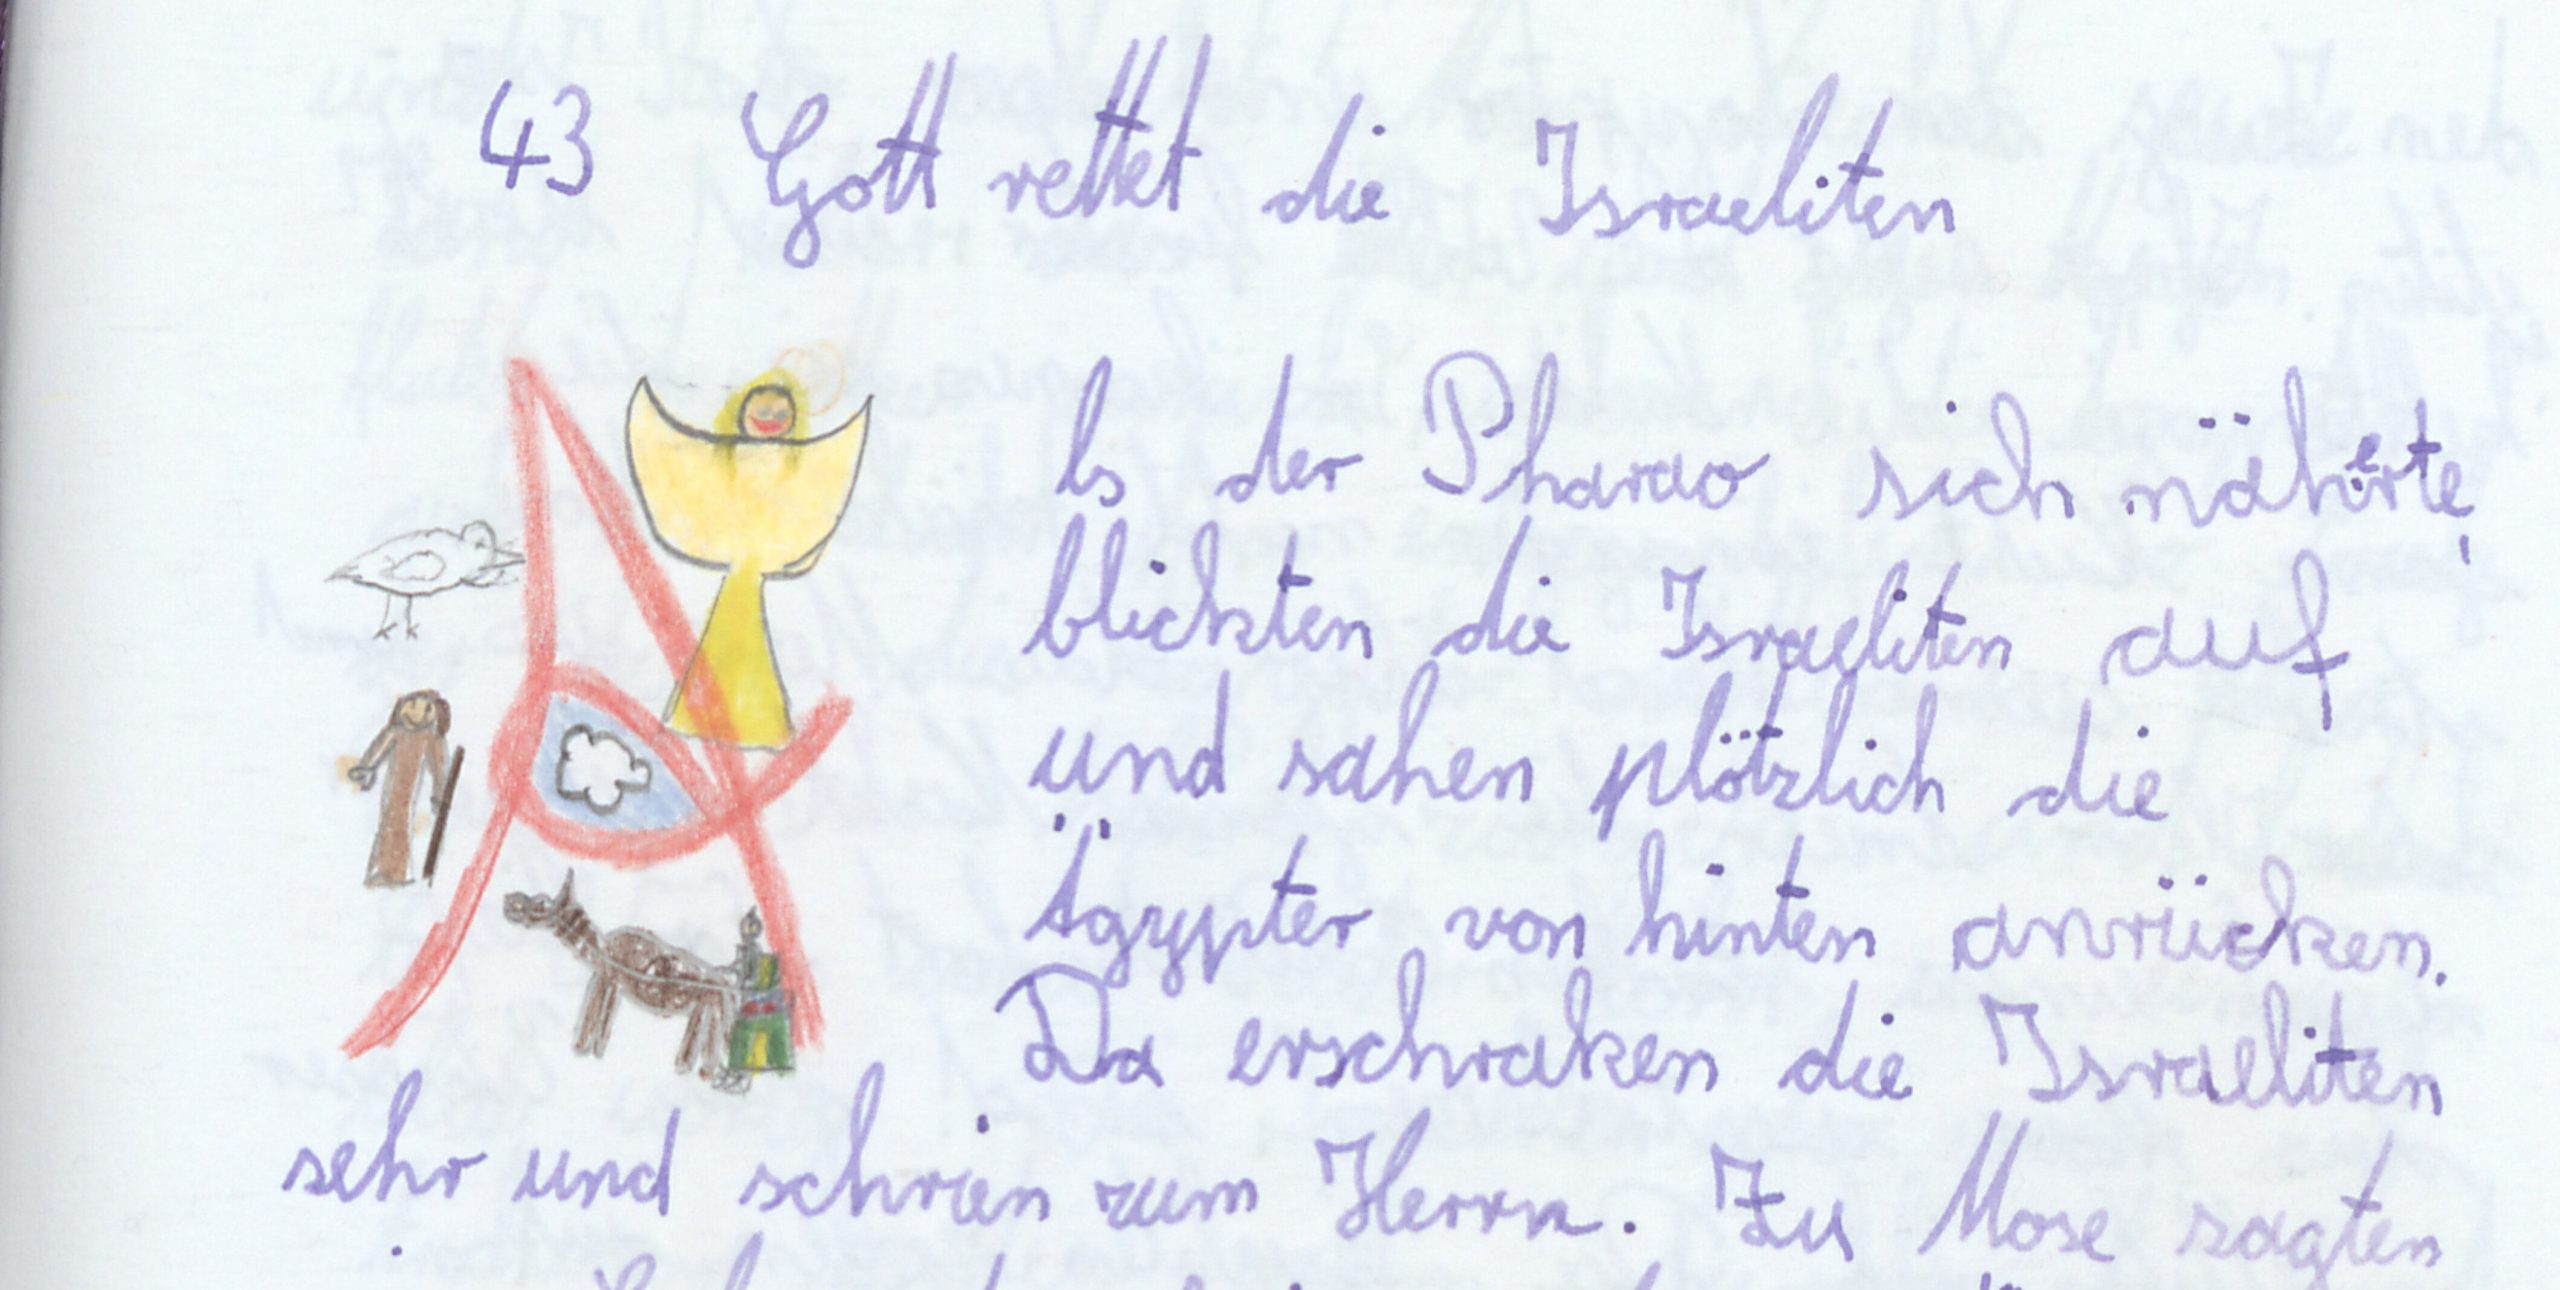 43 Gott rettet die Israeliten
Als der Pharao sich näherte,
blickten die Israeliten auf
und sahen plötzlich die
Ägypter von hinten anrücken.
Da erschraken die Israeliten
sehr und schrien zum Herrn. Zu Mose sagten